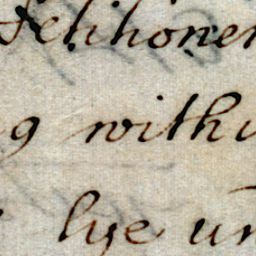 Petitioner
g withi
lye un